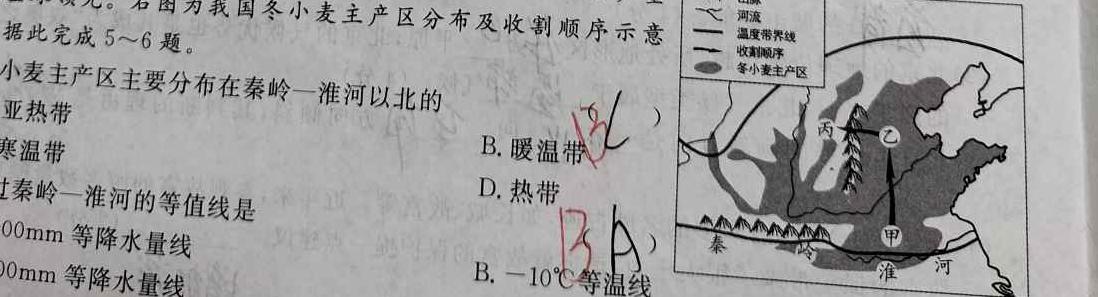 右图为我国冬小麦主产区分布及收割顺序示意
据此完成5～6题。
小麦主产区主要分布在秦岭—淮河以北的
亚热带
B. 暖温带
寒温带
D. 热带
过秦岭—淮河的等值线是
00mm 等降水量线
B. －10℃等温线
00mm 等降水量线
B
C
)
B
A
)
山脉
河流
温度带界线
收割顺序
冬小麦主产区
丙
乙
甲
秦
岭
淮
河